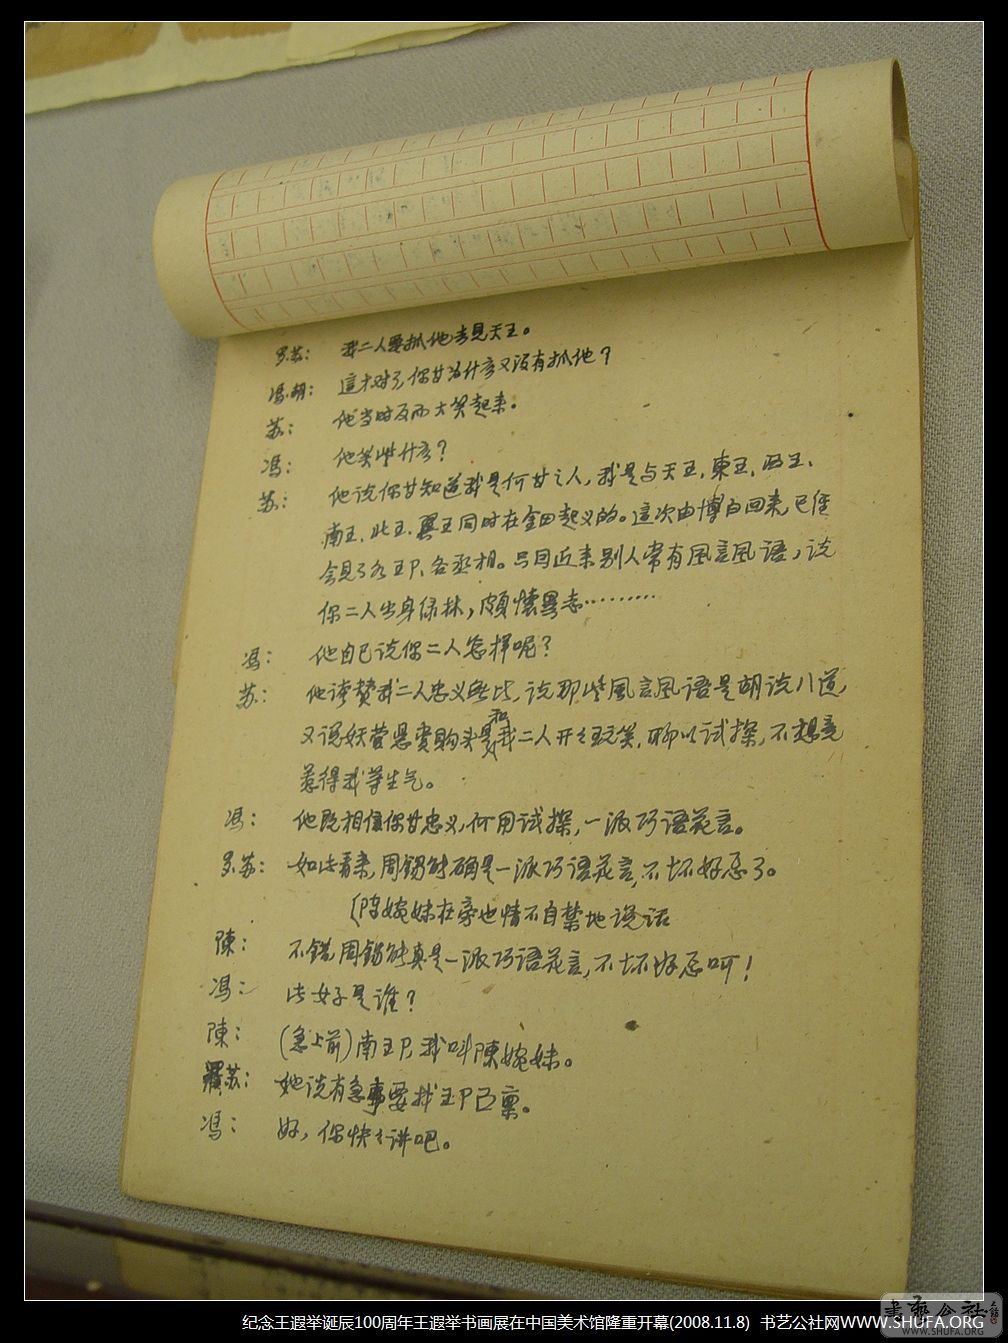 罗苏：我二人要抓他去见天王。
冯胡：這才对了，你廿为什么又没有抓他？
苏：他当时反而大笑起来。
冯：他笑些什么？
苏：他说你廿知道我是何廿之人，我是与天王、東王、西王、
南王、北王、翼王同时在金田起义的。這次由博白回来，已经
会见了各王P、各丞相。只因近来别人常有風言風语，说
你二人出身绿林，頗懷異志………
冯：他自己说你二人怎样呢？
苏：他誇赞我二人忠义無比，说那些風言風语是胡说八道，
又说妖营悬賞购头是和我二人开之玩笑，聊以试探，不想竟
惹得我等生气。
冯：他既相信你廿忠义，何用试探，一派巧语花言。
罗苏：如此看来，周锡能确是一派巧语花言，不坏好忌了。
（陈婉妹在旁也情不自禁地说话
陳：不错，周锡能真是一派巧语花言，不坏好忌呵！
冯：此女子是谁？
陳：（急上前）南王P，我叫陳婉妹。
羅苏：她说有急事要找王P己禀。
冯：好，你快之讲吧。
纪念王遐举诞辰100周年王遐举书画展在中国美术馆隆重开幕(2008.11.8) 书艺公社网WWW.SHUFA.ORG
書藝公社
WWW.SHUFA.ORG